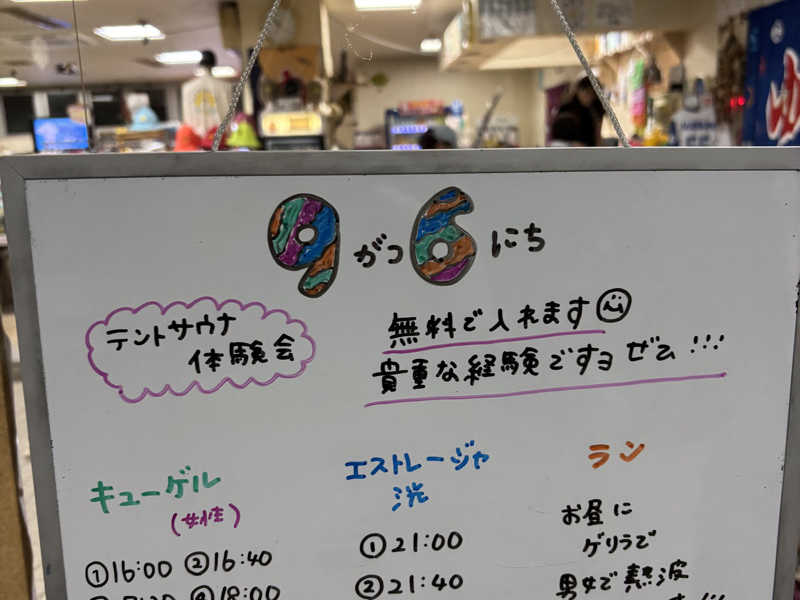 9がつ6にち
テントサウナ
体験会
無料で入れます
貴重な経験ですョ ぜひ!!!
キューゲル
(女性)
①16:00 ②16:40
④18:00
エストレージャ
洸
①21:00
②21:40
ラン
お昼に
ゲリラで
男女で熱波